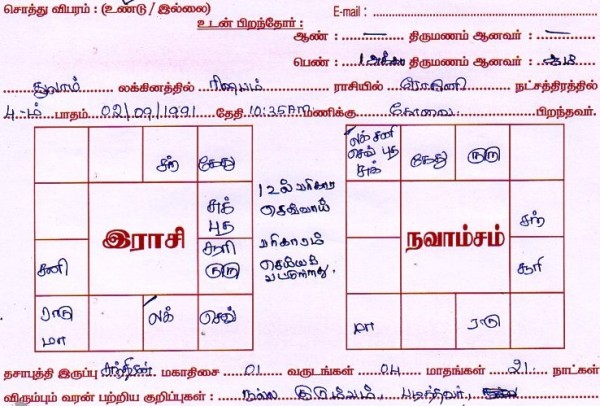 சொத்து விபரம் : (உண்டு / இல்லை)
E-mail :
உடன் பிறந்தோர் :
ஆண் : — திருமணம் ஆனவர் : —
பெண் : 1 அக்கா திருமணம் ஆனவர் : ஆம்
துலாம் லக்கினத்தில் ரிஷபம் ராசியில் ரோகிணி நட்சத்திரத்தில்
4-ம் பாதம் 02/09/1991 தேதி 10:35AM மணிக்கு கோவை பிறந்தவர்.
சந் கேது
சுக் புத
சனி
சூரி குரு
ராகு மா
லக் செவ்
இராசி
12ல்
செவ்வாய்
பரிகாரம்
செய்யப்
பட்டுள்ளது.
லக் சனி
செவ் புத
சுக்
கேது குரு
சந்
சூரி
மா
ராகு
நவாம்சம்
தசாபுத்தி இருப்பு சந்திரன் மகாதிசை 01 வருடங்கள் 04 மாதங்கள் 21 நாட்கள்
விரும்பும் வரன் பற்றிய குறிப்புகள் : நல்ல குடும்பம், படித்தவர்,